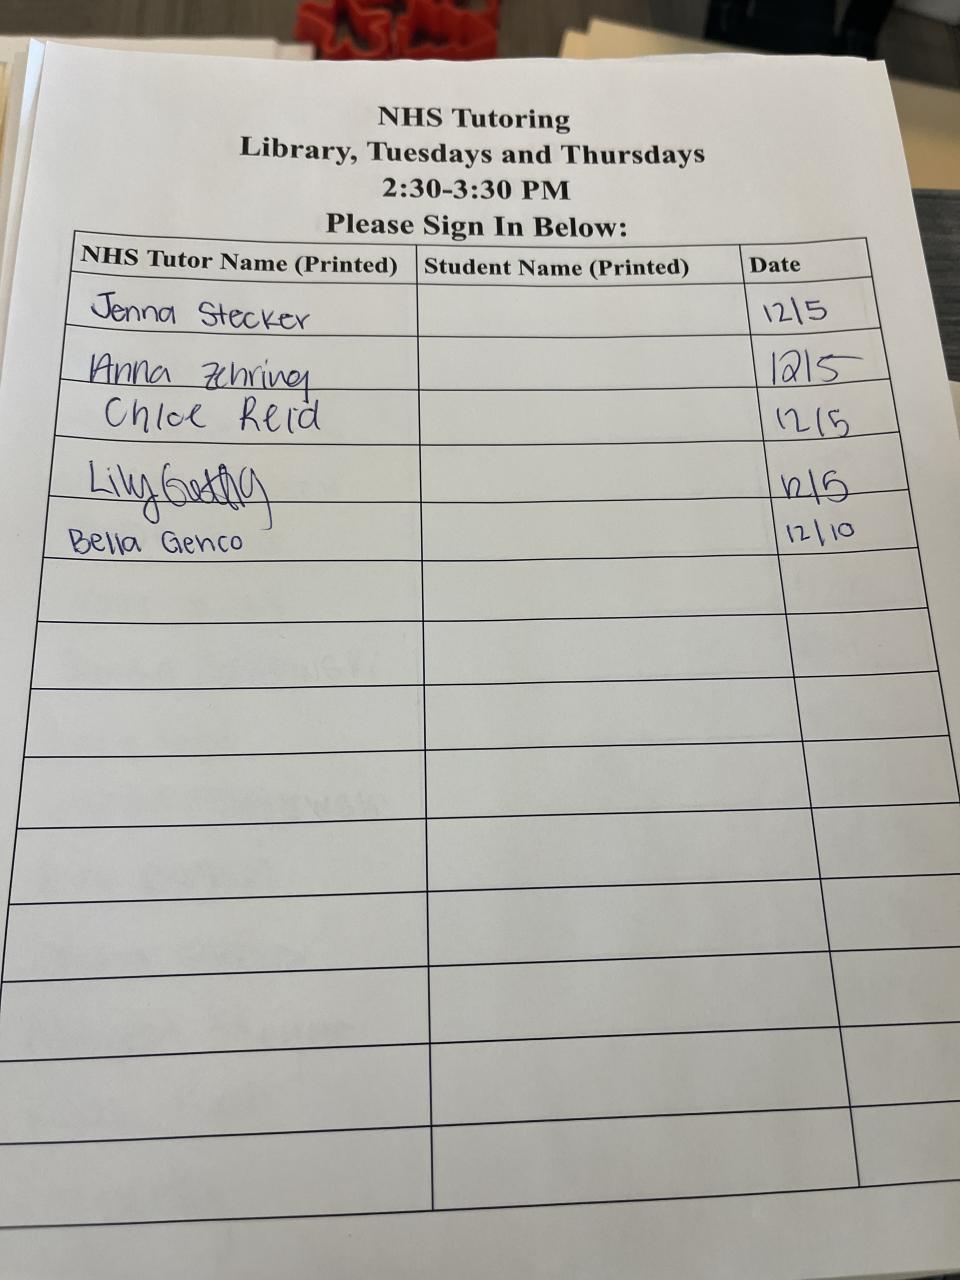 NHS Tutoring
Library, Tuesdays and Thursdays
2:30-3:30 PM
Please Sign In Below:
NHS Tutor Name (Printed) Student Name (Printed) Date
Jenna Stecker 12/5
Anna Zehring 12/5
Chloe Reid 12/5
Lily 12/5
Bella Genco 12/10